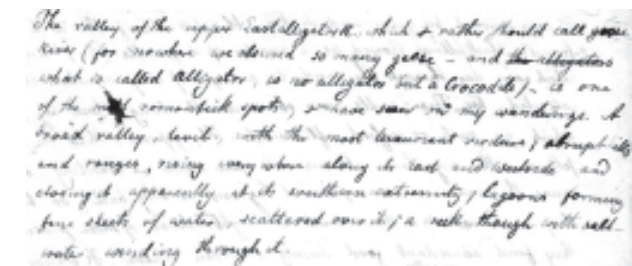 The valley of the upper East alligator, which I rather should call goose
River (for nowhere we observed so many geese - and the alligators
what is called Alligator, is no alligator but a Crocodile) - is one
of the most romantick spots, I have seen in my wanderings. A
broad valley, level, with the most luxuriant verdure; abrupt hills
and ranges, rising everywhere along its east and westside and
closing it apparently at its southern extremity; lagoons forming
fine sheets of water, scattered over it; a creek though with salt
water winding through it.